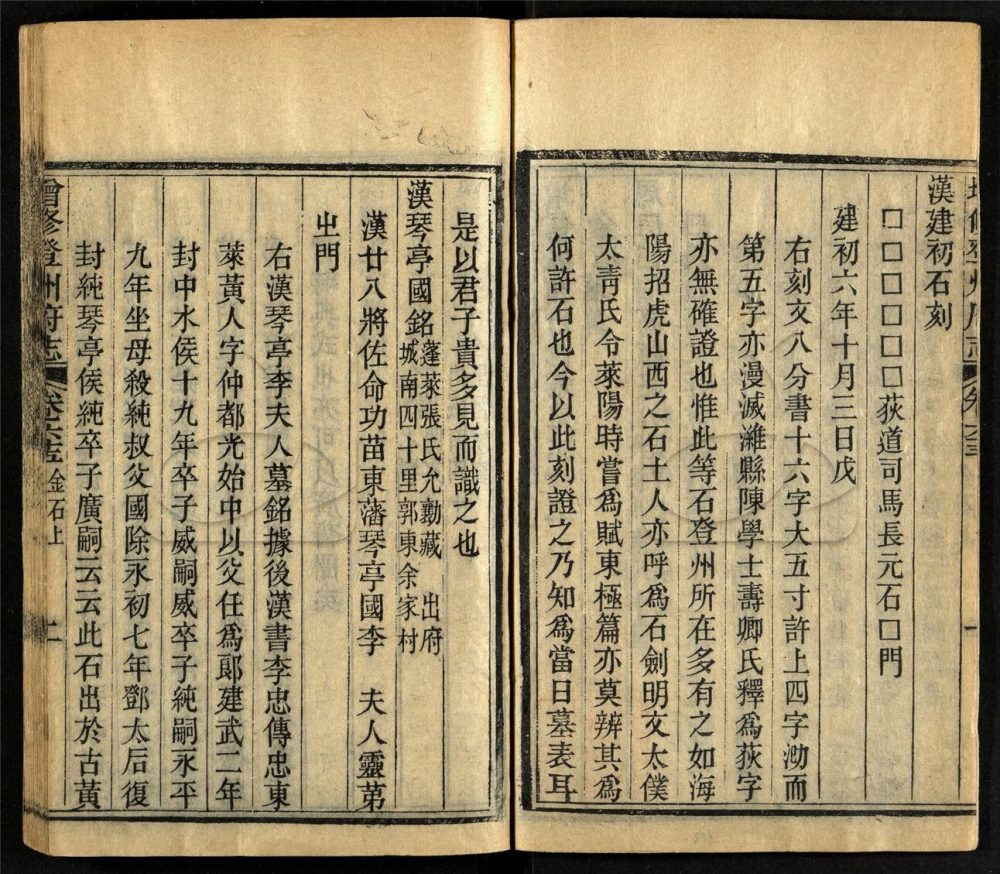 漢建初石刻
□□□□□□荻道司馬長元石□門
建初六年十月三日戊
右刻文八分書十六字大五寸許上四字泐而
第五字亦漫滅濰縣陳學士壽卿氏釋爲荻字
亦無確證也惟此等石登州所在多有之如海
陽招虎山西之石土人亦呼爲石劍明文太僕
太青氏令萊陽時嘗爲賦東極篇亦莫辨其爲
何許石也今以此刻證之乃知爲當日墓表耳
是以君子貴多見而識之也
漢琴亭國銘 蓬萊張氏允勷藏 出府
城南四十里郭東余家村
漢廿八將佐命功苗東藩琴亭國李 夫人靈第
出門
右漢琴亭李夫人墓銘據後漢書李忠傳忠東
萊黃人字仲都光始中以父任爲郎建武二年
封中水侯十九年卒子威嗣威卒子純嗣永平
九年坐母殺純叔父國除永初七年鄧太后復
封純琴亭侯純卒子廣嗣云云此石出於古黃
增修登州府志 卷六十五 金石上